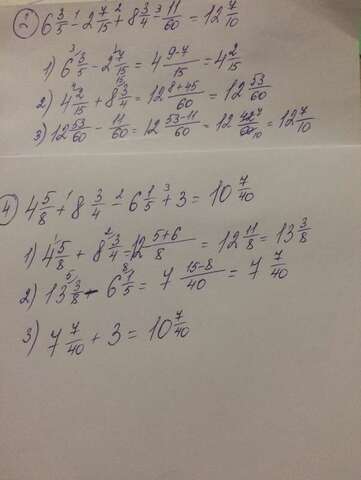 ② 6 3/5 - 2 7/15 + 8 3/4 - 11/60 = 12 7/10
1) 6 3/5 - 2 7/15 = 4 9-7/15 = 4 2/15
2) 4 2/15 + 8 3/4 = 12 8+45/60 = 12 53/60
3) 12 53/60 - 11/60 = 12 53-11/60 = 12 42/60 = 12 7/10
④ 4 5/8 + 8 3/4 - 6 1/5 + 3 = 10 7/40
1) 4 5/8 + 8 3/4 = 12 5+6/8 = 12 11/8 = 13 3/8
2) 13 3/8 - 6 1/5 = 7 15-8/40 = 7 7/40
3) 7 7/40 + 3 = 10 7/40